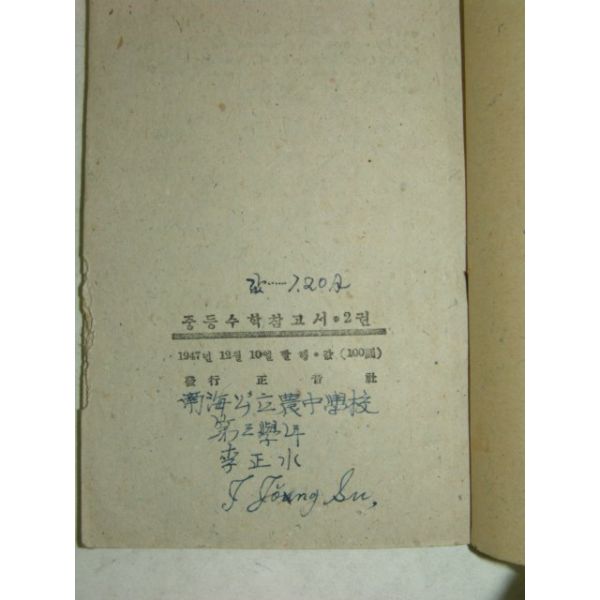 값......120원
중등수학참고서•2권
1947년 12월 10일 발행•값 (100圓)
發行 正音社
南海公立農中學校
第三學年
李正水
I Jŏung Su.